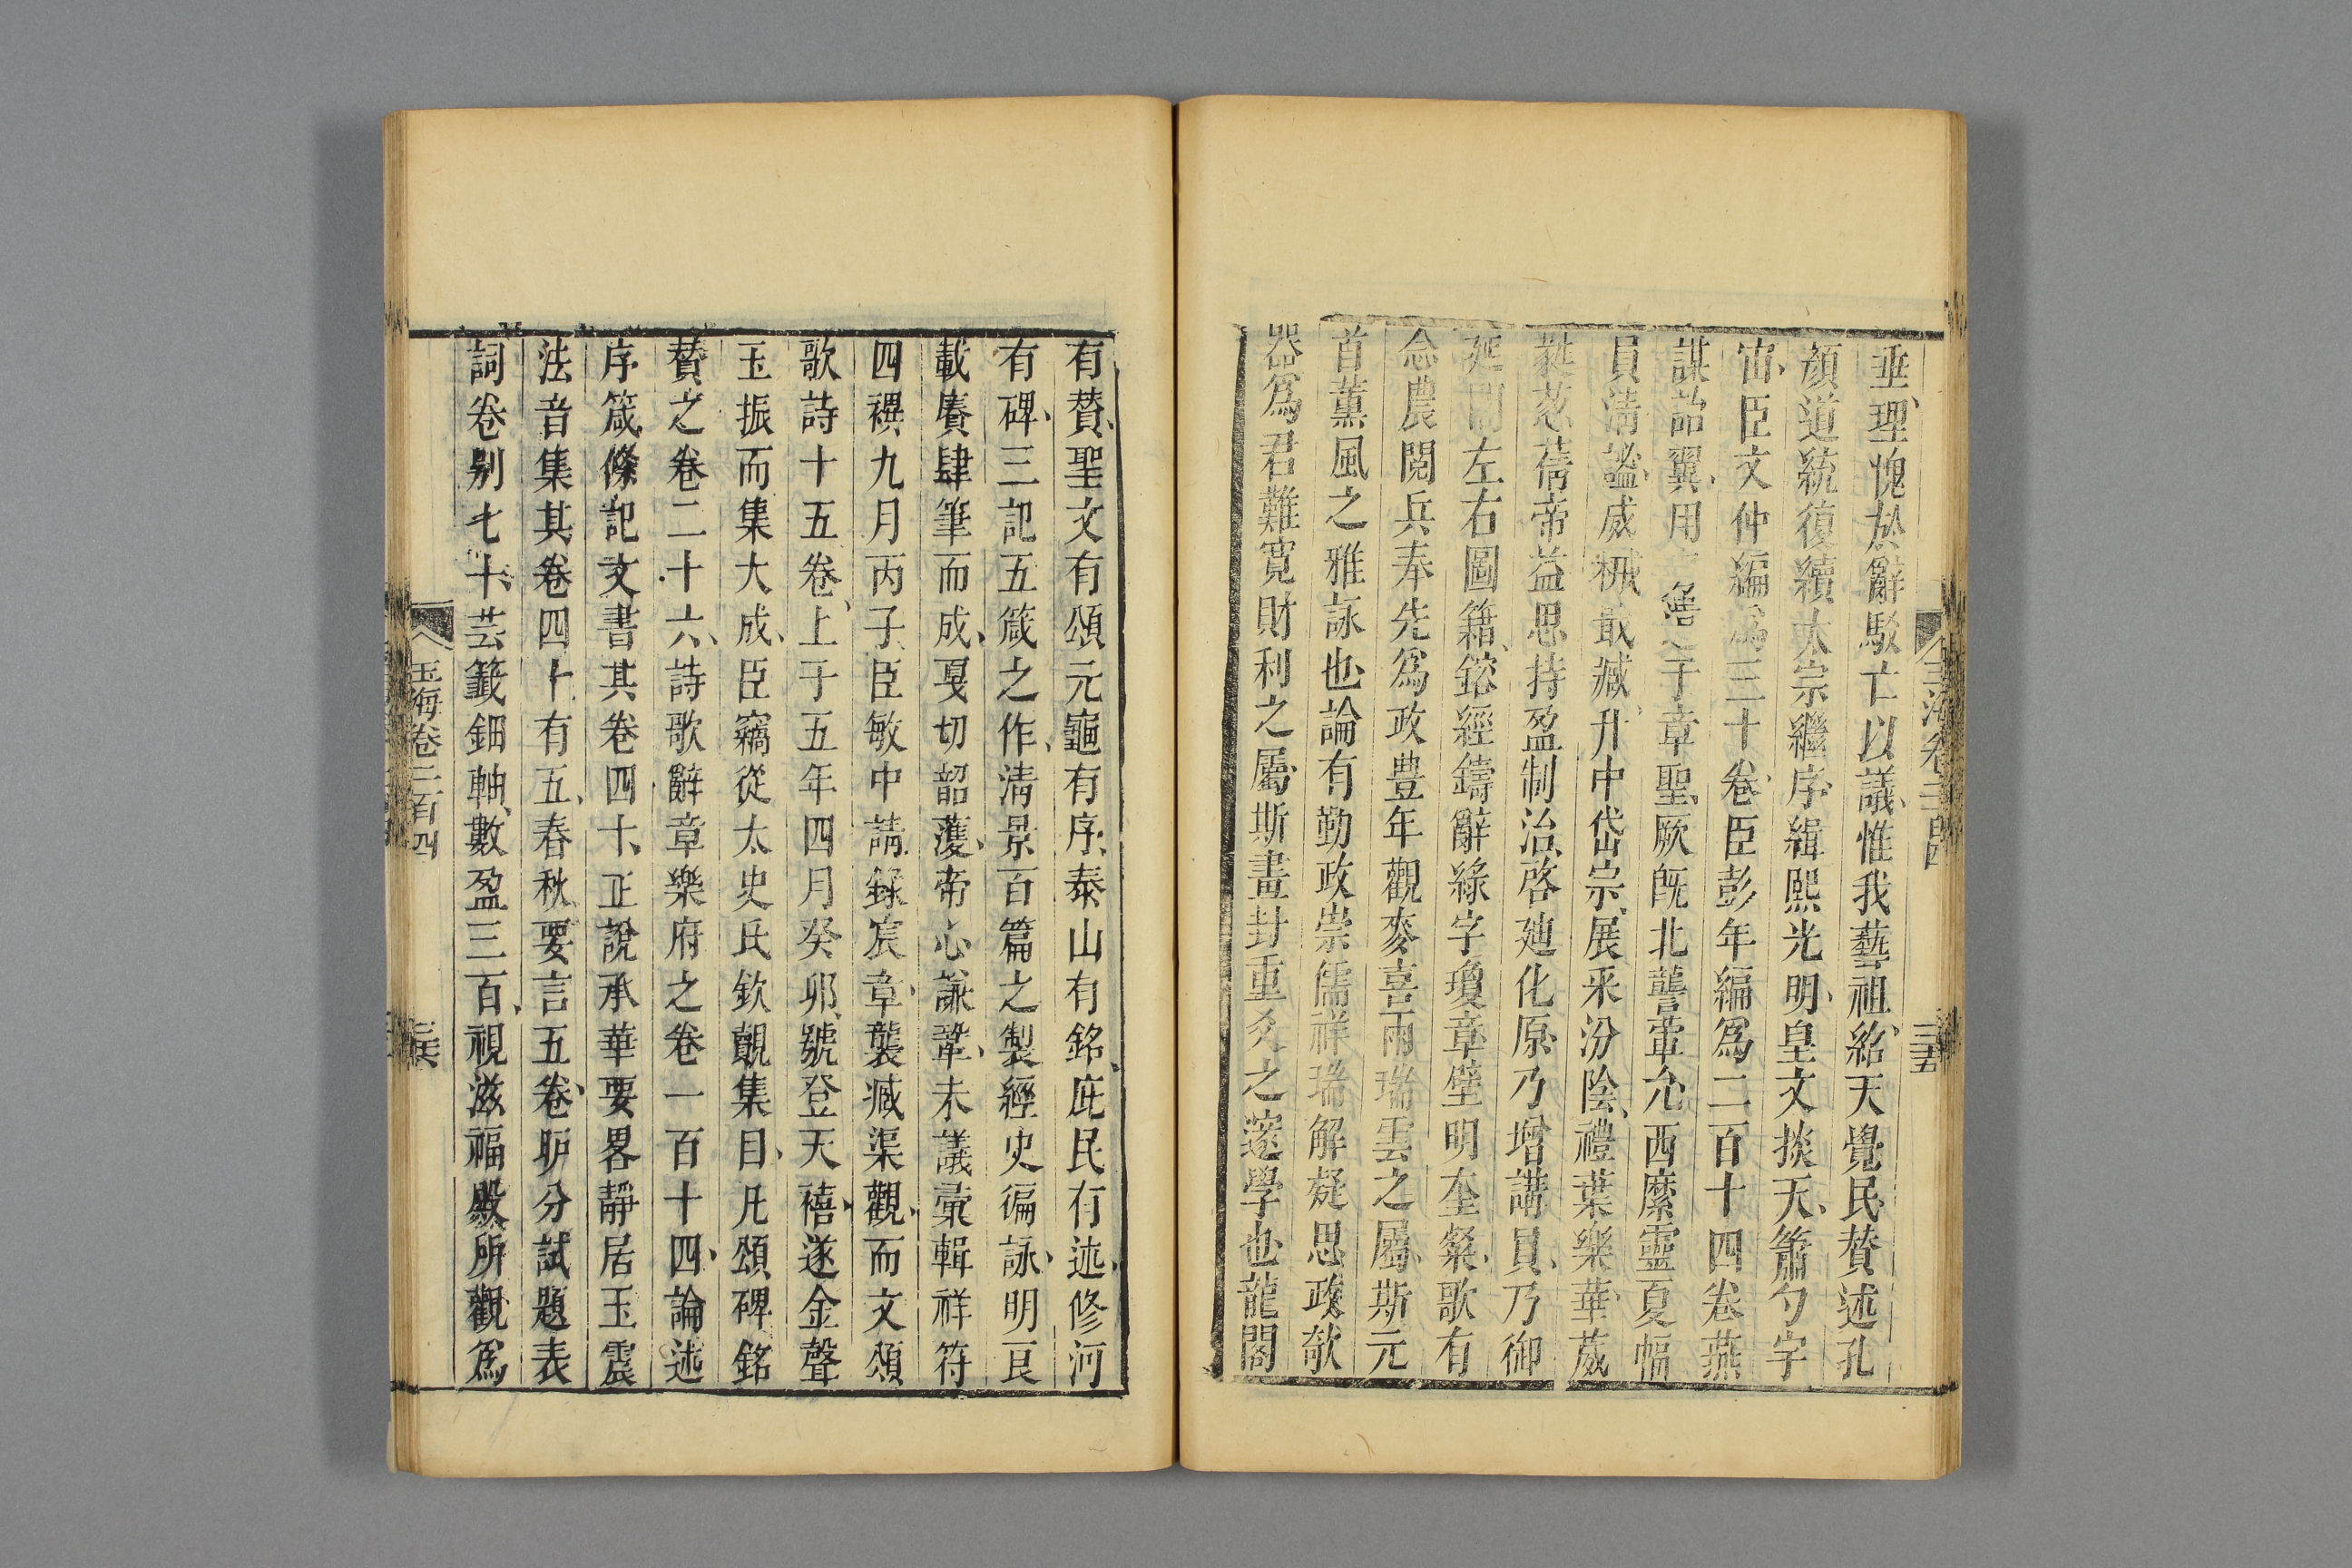 垂理愧於辭駁亡以議惟我藝祖紹天覺民賛述孔
顔道統復續太宗繼序緝熙光明皇文掞天簫勺字
宙臣文仲編爲三十卷臣彭年編爲二百十四卷燕
謀詒翼用 于章聖厥既北讋葷允西縻靈夏幅
員清謐威 最臧升中岱宗展采汾陰禮葉樂華葳
蕤葱蒨帝益思持盈制治啓廸化原乃増講員乃御
延閣左右圖籍鎔經鑄辭綠字瓊章壁明奎粲歌有
念農閲兵奉先爲政豊年觀麥喜雨瑞雲之屬斯元
首薰風之雅詠也論有勤政崇儒祥瑞解疑思政欹
器爲君難寛財利之屬斯畫卦重爻之邃學也龍閣
玉海卷二百四
三五
有賛聖文有頌元龜有序泰山有銘庇民有述修河
有碑三記五箴之作清景百篇之製經史徧詠明良
載賡肆筆而成戛切韶頀帝心謙鞏未議彙輯祥符
四禩九月丙子臣敏中請錄宸章襲臧渠觀而文頌
歌詩十五卷上于五年四月癸卯號登天禧遂金聲
玉振而集大成臣竊從太史氏欽覩集目凡頌碑銘
賛之卷二十六詩歌辭章樂府之卷一百十四論述
序箴條記文書其卷四十正說承華要畧靜居玉宸
法音集其卷四十有五春秋要言五卷昈分試題表
詞卷别七十芸籤鈿軸數盈三百視滋福殿所觀爲
玉海卷二百四
三六